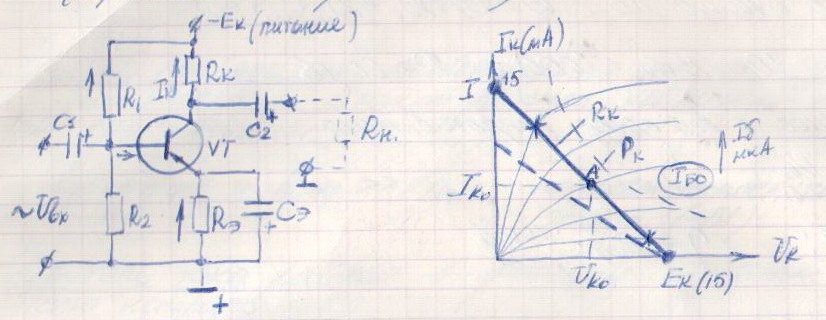 -Eк (питание)
R1
I
Rк
C2
+
Rн.
C1
+
VT
~Uвх
R2
Rэ
Cэ
+
+
Iк(мА)
I
15
Rк
Pк
Iб
мкА
A
Iбо
Iко
Uко
Eк(15)
Uк